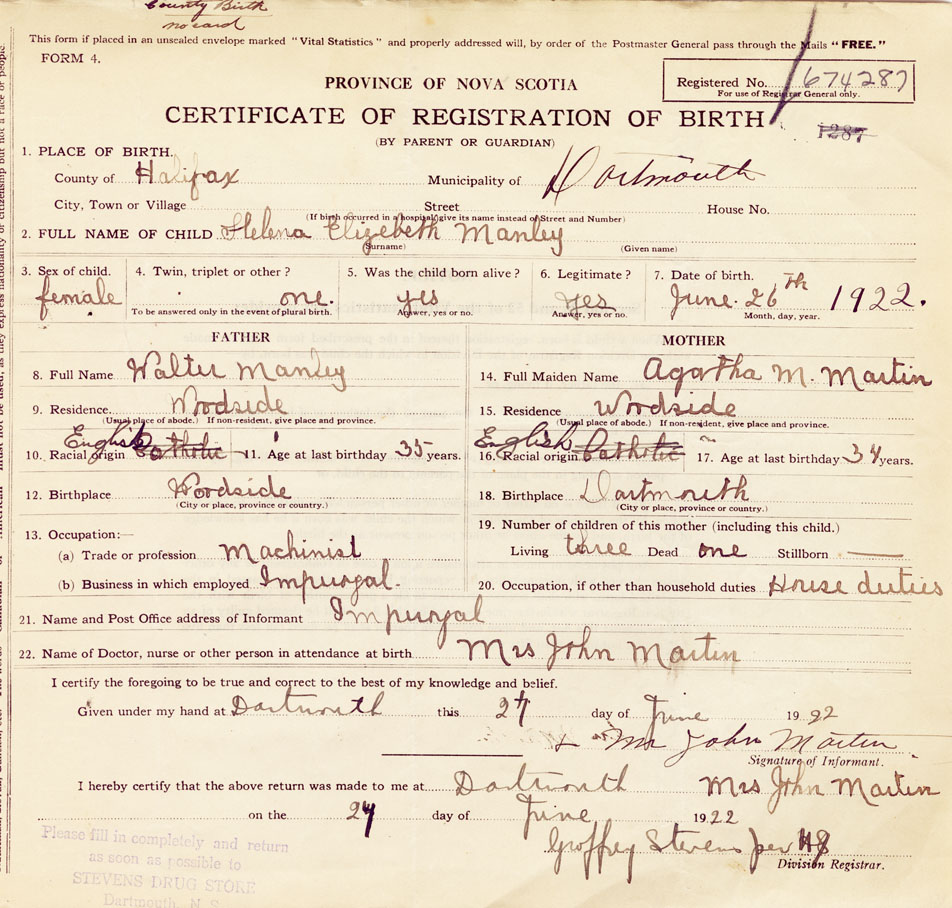 County Birth
no card
This form if placed in an unsealed envelope marked "Vital Statistics" and properly addressed will, by order of the Postmaster General pass through the Mails "FREE."
FORM 4.
PROVINCE OF NOVA SCOTIA
Registered No. 674287
For use of Registrar General only.
CERTIFICATE OF REGISTRATION OF BIRTH
1287
(BY PARENT OR GUARDIAN)
1. PLACE OF BIRTH.
County of Halifax Municipality of Dartmouth
City, Town or Village Street House No.
(If birth occurred in a hospital give its name instead of Street and Number)
2. FULL NAME OF CHILD Helena Elizebeth Manley
(Surname) (Given name)
3. Sex of child. 4. Twin, triplet or other? 5. Was the child born alive? 6. Legitimate? 7. Date of birth.
female one. yes yes June 26th 1922.
To be answered only in the event of plural birth. Answer, yes or no. Answer, yes or no. Month, day, year.
FATHER MOTHER
8. Full Name Walter Manley 14. Full Maiden Name Agatha M. Martin
9. Residence. Woodside 15. Residence Woodside
(Usual place of abode.) If non-resident, give place and province. (Usual place of abode.) If non-resident, give place and province.
English English
10. Racial origin Catholic 11. Age at last birthday 35 years. 16. Racial origin Catholic 17. Age at last birthday 34 years.
12. Birthplace Woodside 18. Birthplace Dartmouth
(City or place, province or country.) (City or place, province or country.)
13. Occupation:— 19. Number of children of this mother (including this child.)
(a) Trade or profession Machinist Living three Dead one Stillborn —
(b) Business in which employed Impuryal. 20. Occupation, if other than household duties House duties
21. Name and Post Office address of Informant Impuryal
22. Name of Doctor, nurse or other person in attendance at birth Mrs John Martin
I certify the foregoing to be true and correct to the best of my knowledge and belief.
Given under my hand at Dartmouth this 27 day of June 1922
Mrs John Martin
Signature of Informant.
I hereby certify that the above return was made to me at Dartmouth Mrs John Martin
on the 27 day of June 1922
Geoffrey Stevens per HS
Division Registrar.
Please fill in completely and return
as soon as possible to
STEVENS DRUG STORE
Dartmouth, N. S.